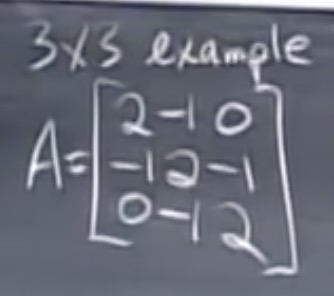 3x3 example
A=
2 -1 0
-1 2 -1
0 -1 2